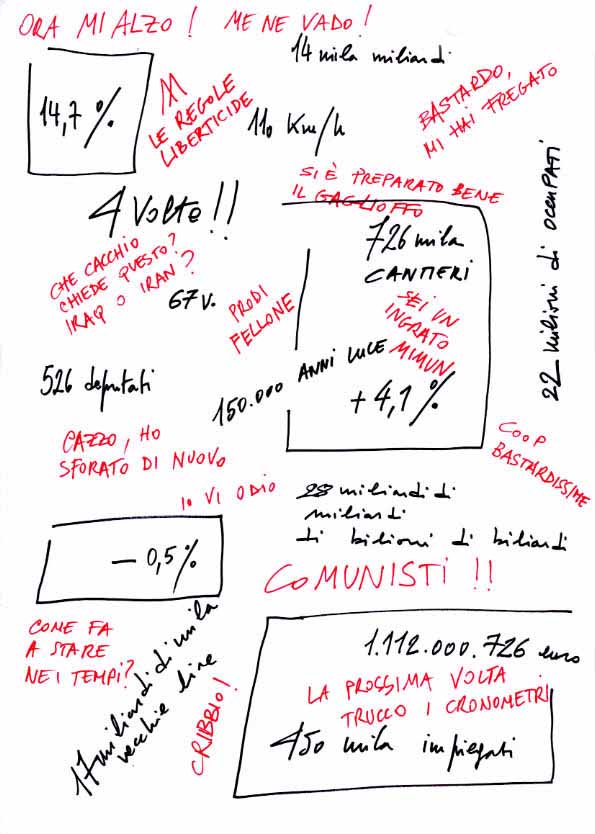 ORA MI ALZO! ME NE VADO!
14 mila miliardi
14,7 %
LE REGOLE
LIBERTICIDE
110 Km/h
BASTARDO,
MI HAI FREGATO
SI È PREPARATO BENE
IL GAGLIOFFO
4 volte!!
726 mila
CANTIERI
CHE CACCHIO
CHIEDE QUESTO?
IRAQ O IRAN?
67 v.
PRODI
FELLONE
SEI UN
INGRATO
MIMUN
22 milioni di occupati
526 deputati
150.000 ANNI LUCE
+4,1%
CAZZO, HO
SFORATO DI NUOVO
COOP
BASTARDISSIME
IO VI ODIO
28 miliardi di
miliardi
di bilioni di biliardi
- 0,5%
COMUNISTI!!
COME FA
A STARE
NEI TEMPI?
17 miliardi di mila
vecchie lire
CRIBBIO!
1.112.000.726 euro
LA PROSSIMA VOLTA
TRUCCO I CRONOMETRI
450 mila impiegati